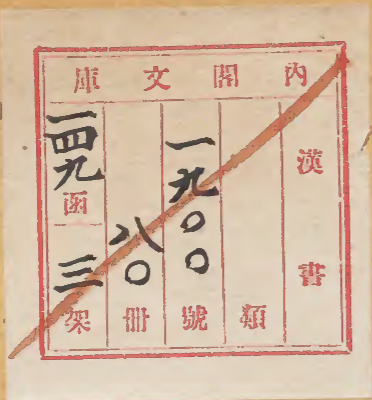 內閣文庫
漢書
類
一九〇〇號
八〇冊
一四九函
三架